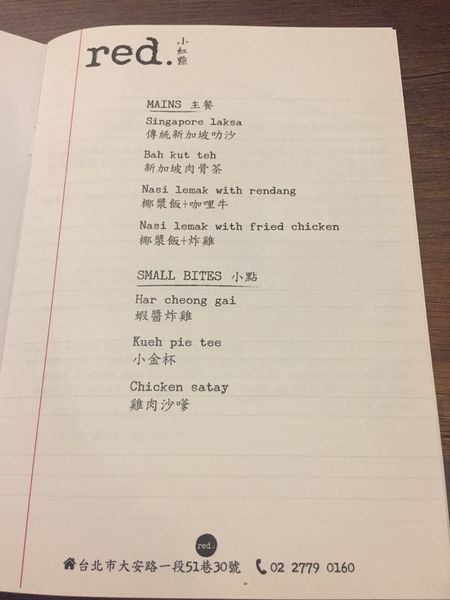 red. 小紅點
MAINS 主餐
Singapore laksa
傳統新加坡叻沙
Bah kut teh
新加坡肉骨茶
Nasi lemak with rendang
椰漿飯+咖哩牛
Nasi lemak with fried chicken
椰漿飯+炸雞
SMALL BITES 小點
Har cheong gai
蝦醬炸雞
Kueh pie tee
小金杯
Chicken satay
雞肉沙嗲
red.
台北市大安路一段51巷30號 02 2779 0160